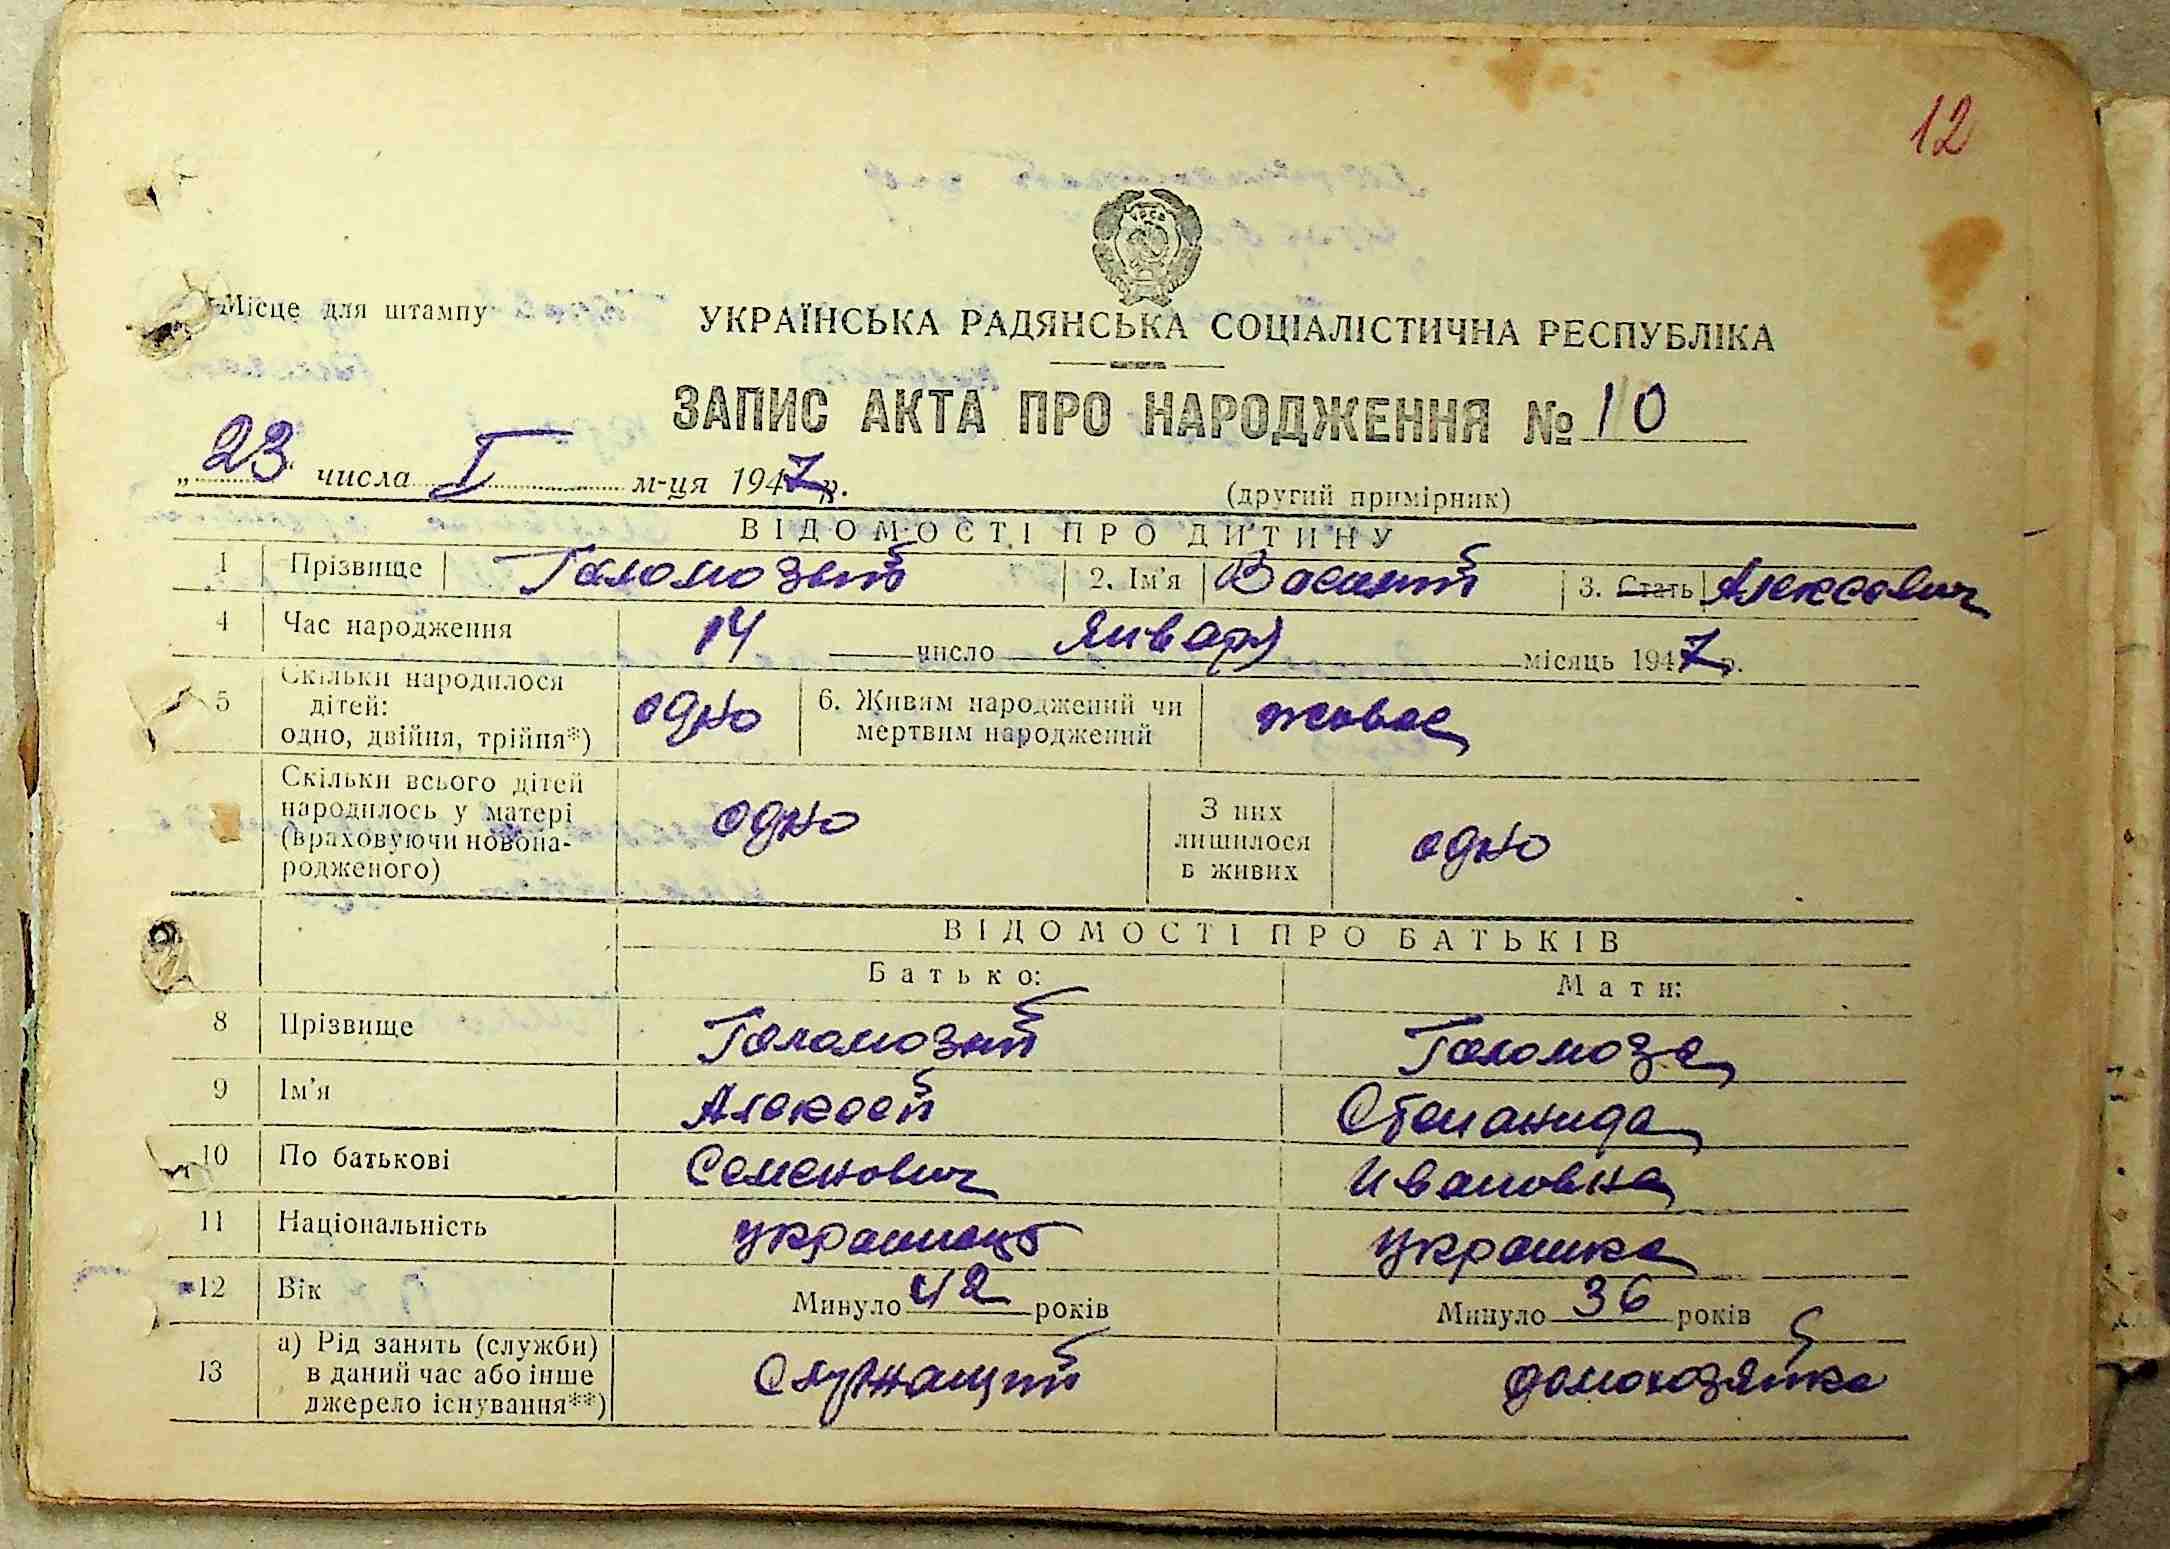 12
УРСР
Місце для штампу
УКРАЇНСЬКА РАДЯНСЬКА СОЦІАЛІСТИЧНА РЕСПУБЛІКА
ЗАПИС АКТА ПРО НАРОДЖЕННЯ № 10
„23" числа I м-ця 1947 р.
(другий примірник)
ВІДОМОСТІ ПРО ДИТИНУ
1 Прізвище Голомозый 2. Ім'я Василий 3. Стать Алексеевич
4 Час народження 14 число Января місяць 1947 р.
5 Скільки народилося
дітей:
одно, двійня, трійня*) одно 6. Живим народжений чи
мертвим народжений живое
Скільки всього дітей
народилось у матері
(враховуючи новона-
родженого) одно З них
лишилося
в живих одно
ВІДОМОСТІ ПРО БАТЬКІВ
Батько: Мати:
8 Прізвище Голомозый Голомоза
9 Ім'я Алексей Степанида
10 По батькові Семенович Ивановна
11 Національність украинец украинка
12 Вік Минуло 42 років Минуло 36 років
13 а) Рід занять (служби)
в даний час або інше
джерело існування**) Служащий домохозяйка